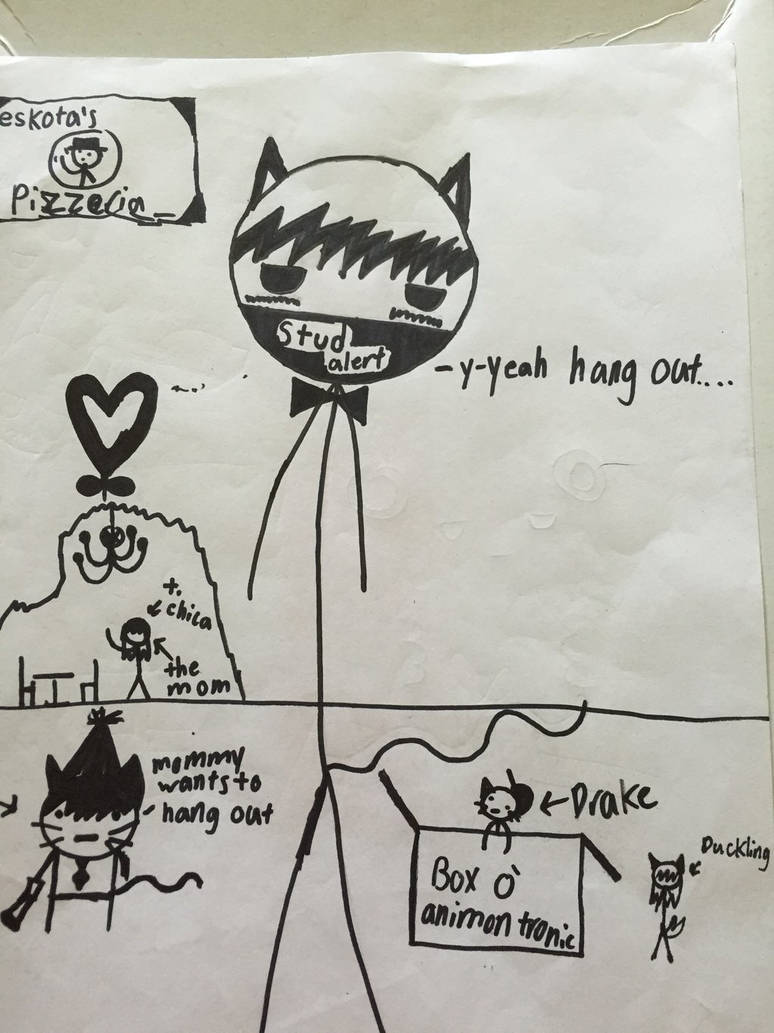 eskota's
Pizzeria
Stud
alert
-y-yeah hang out....
t. chica
the
mom
mommy
wants to
hang out
Drake
Box O'
animon tronic
Duckling